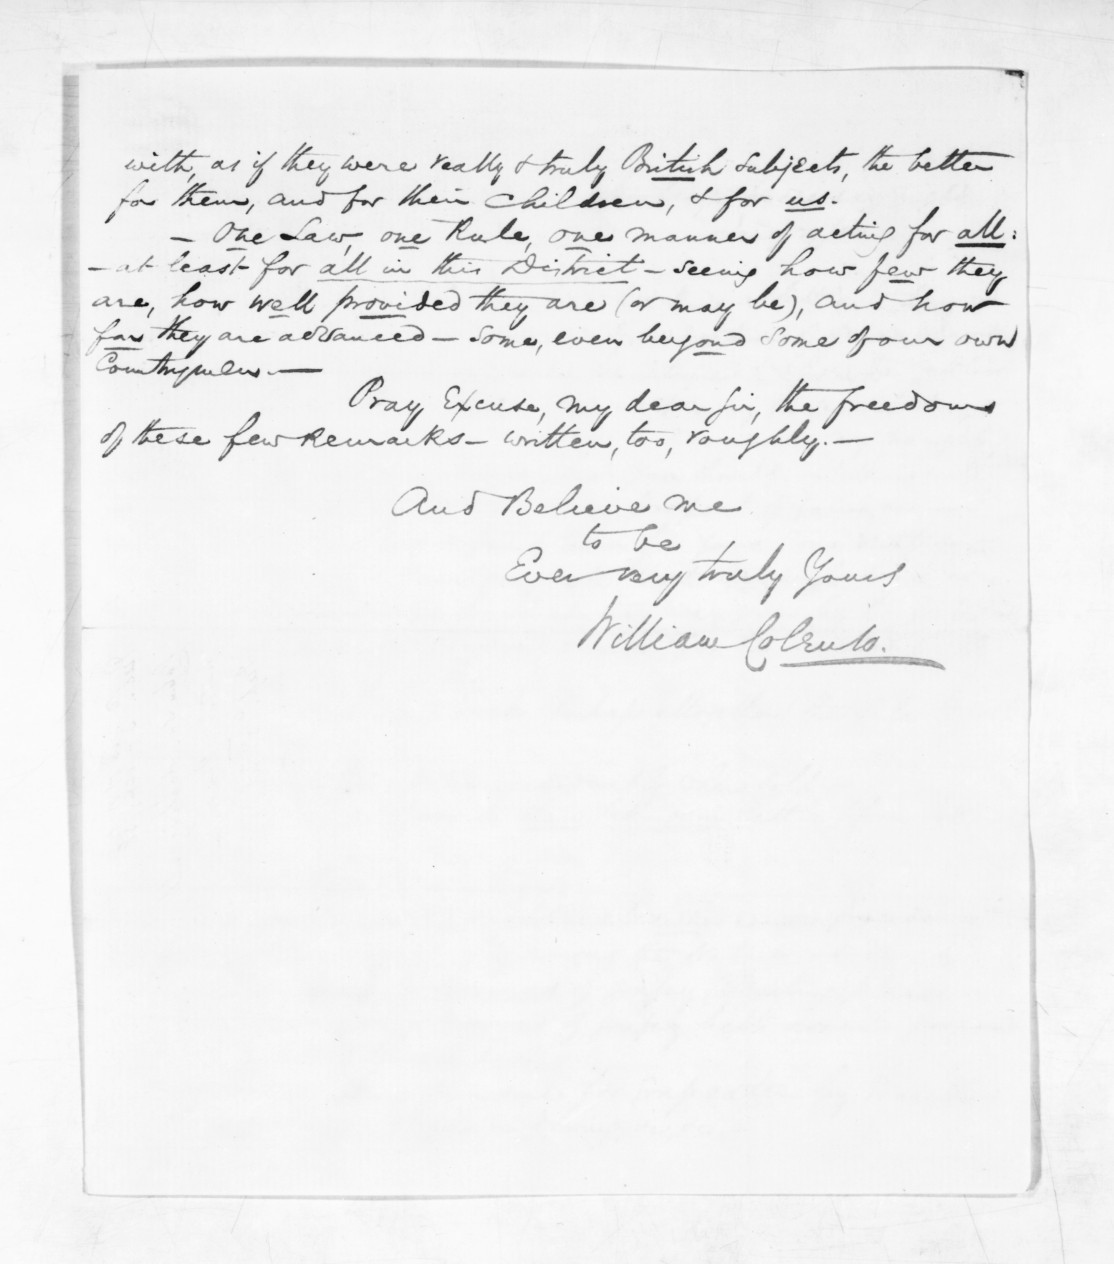 with, as if they were really & truly British subjects, the better
for them, and for their children, & for us.
— One Law, one Rule, one manner of acting for all:
— at least for all in this District — seeing how few they
are, how well provided they are (or may be), and how
far they are advanced — some, even beyond some of our own
Countrymen. —
Pray Excuse, my dear Sir, the freedom
of these few Remarks — written, too, roughly. —
And Believe me
to be
Ever very truly Yours
William Colenso.